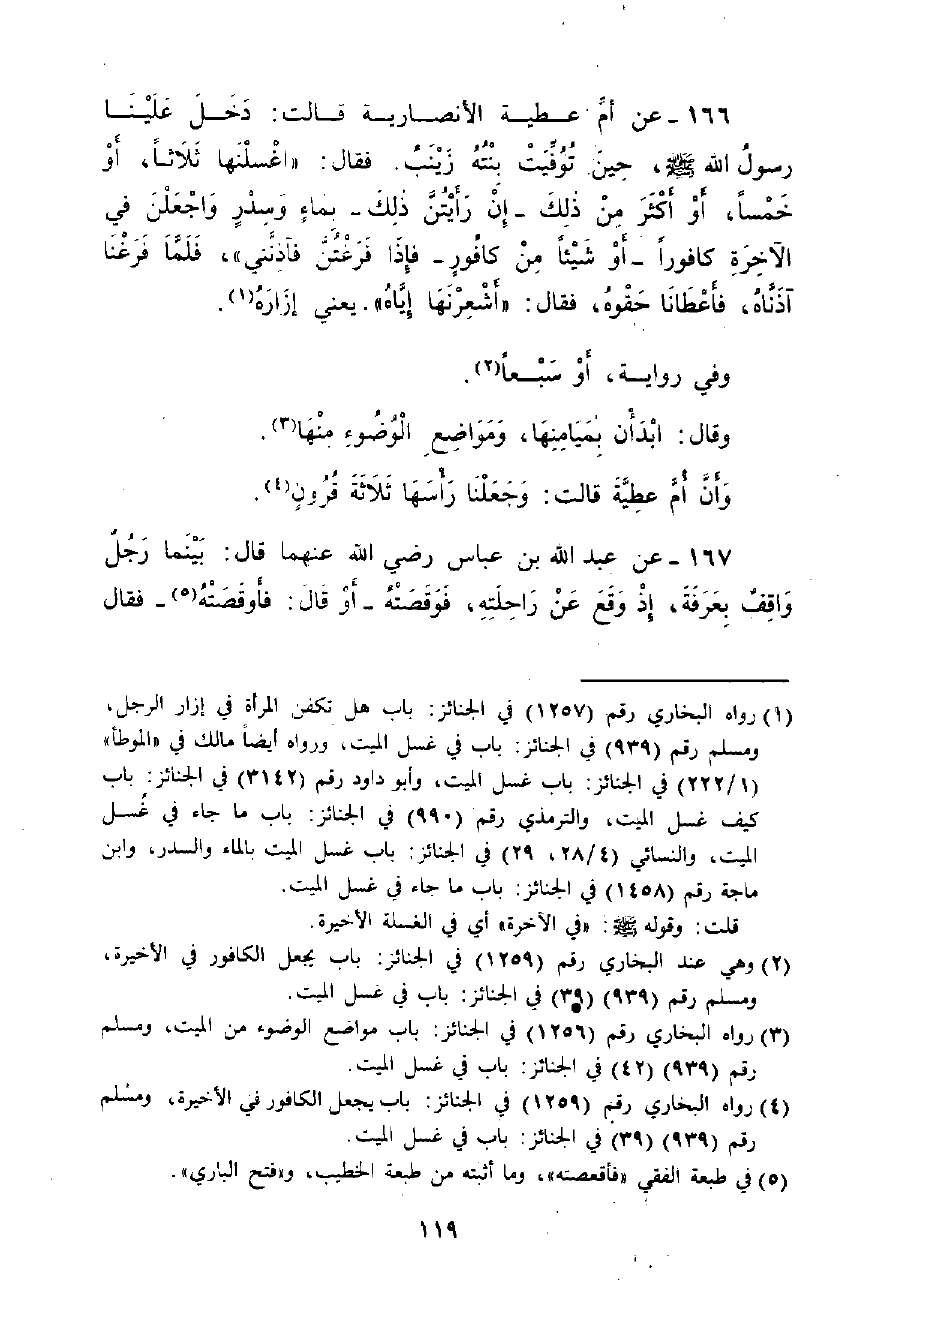 ١٦٦ ـ عن أمِّ عطية الأنصارية قالت: دَخَلَ عَلَيْنَا
رسولُ الله ﷺ، حِينَ تُوُفِّيَتْ بِنْتُهُ زَيْنَبُ. فقال: «اغْسلْنَها ثَلَاثاً، أَوْ
خَمْساً، أَوْ أَكْثَرَ مِنْ ذٰلِكَ ـ إنْ رَأَيْتُنَّ ذٰلِكَ ـ بِماءٍ وَسِدْرٍ وَاجْعَلْنَ في
الآخِرَةِ كافوراً ـ أَوْ شَيْئاً مِنْ كافُورٍ ـ فإذَا فَرَغْتُنَّ فآذِنَّني»، فَلَمَّا فَرَغْنَا
آذَنَّاهُ، فأَعْطَانَا حَقْوهُ، فقال: «أَشْعِرْنَهَا إيَّاهُ». يعني إزَارَهُ(١).
وفي رواية، أَوْ سَبْعاً(٢).
وقال: ابْدَأْن بِمَيَامِنِهَا، وَمَوَاضِعِ الْوُضُوءِ مِنْهَا(٣).
وَأَنَّ أُمَّ عطِيَّة قالت: وَجَعَلْنَا رَأْسَهَا ثَلَاثَةَ قُرُونٍ(٤).
١٦٧ ـ عن عبد الله بن عباس رضي الله عنهما قال: بَيْنَما رَجُلٌ
وَاقِفٌ بِعَرَفَةَ، إذْ وَقَعَ عَنْ رَاحِلَتِهِ، فَوَقَصَتْهُ ـ أَوْ قَالَ: فأَوقَصَتْهُ(٥) ـ فقال
(١) رواه البخاري رقم (١٢٥٧) في الجنائز: باب هل تكفن المرأة في إزار الرجل،
ومسلم رقم (٩٣٩) في الجنائز: باب في غسل الميت، ورواه أيضاً مالك في «الموطأ»
(٢٢٢/١) في الجنائز: باب غسل الميت، وأبو داود رقم (٣١٤٢) في الجنائز: باب
كيف غسل الميت، والترمذي رقم (٩٩٠) في الجنائز: باب ما جاء في غُسل
الميت، والنسائي (٢٨/٤، ٢٩) في الجنائز: باب غسل الميت بالماء والسدر، وابن
ماجة رقم (١٤٥٨) في الجنائز: باب ما جاء في غسل الميت.
قلت: وقوله ﷺ: «في الآخرة» أي في الغسلة الأخيرة.
(٢) وهي عند البخاري رقم (١٢٥٩) في الجنائز: باب يجعل الكافور في الأخيرة،
ومسلم رقم (٩٣٩) (٣٩) في الجنائز: باب في غسل الميت.
(٣) رواه البخاري رقم (١٢٥٦) في الجنائز: باب مواضع الوضوء من الميت، ومسلم
رقم (٩٣٩) (٤٢) في الجنائز: باب في غسل الميت.
(٤) رواه البخاري رقم (١٢٥٩) في الجنائز: باب يجعل الكافور في الأخيرة، ومسلم
رقم (٩٣٩) (٣٩) في الجنائز: باب في غسل الميت.
(٥) في طبعة الفقي «فأقعصته»، وما أثبته من طبعة الخطيب، و«فتح الباري».
١١٩